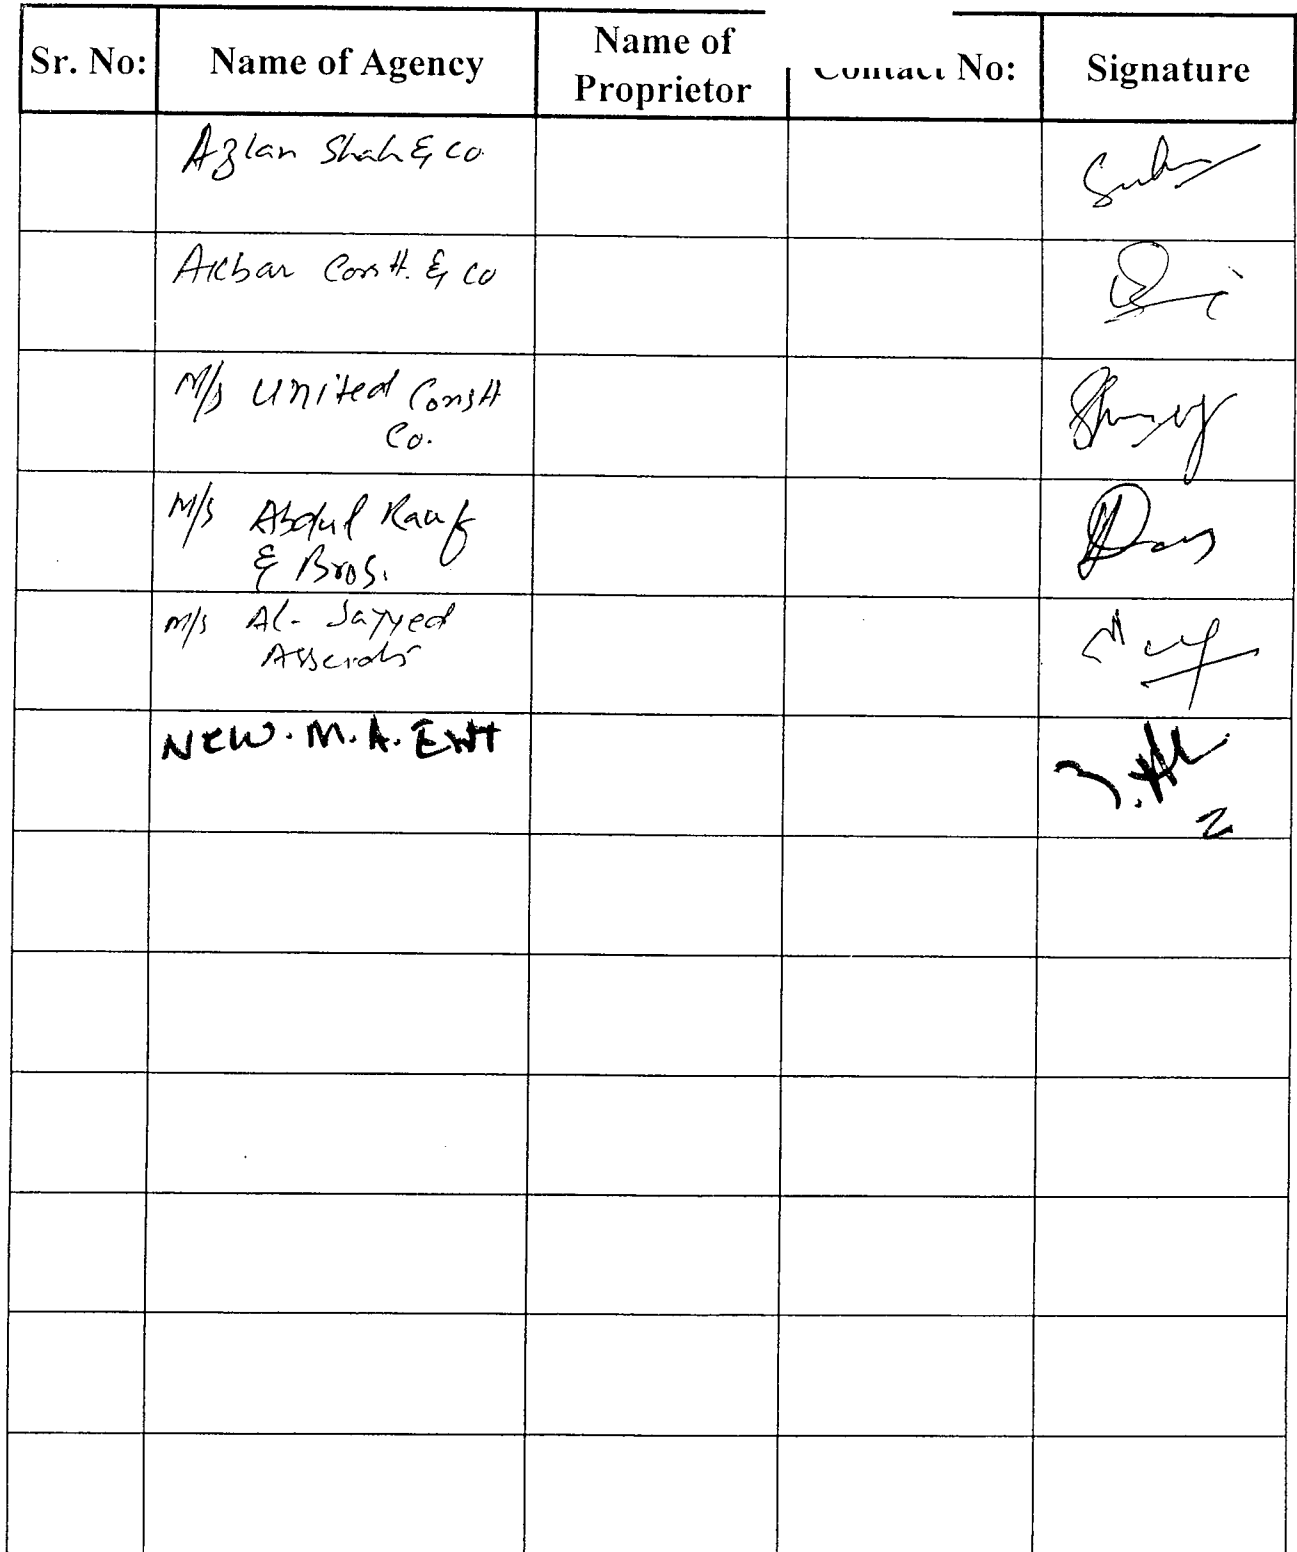 Sr. No: Name of Agency Name of Proprietor Contact No: Signature
Azlan Shah & co
Akbar Constt. & co
M/s United Constt
Co.
M/s Abdul Rauf
& Bros.
M/s Al-Sayyed
New. M.A. Ent